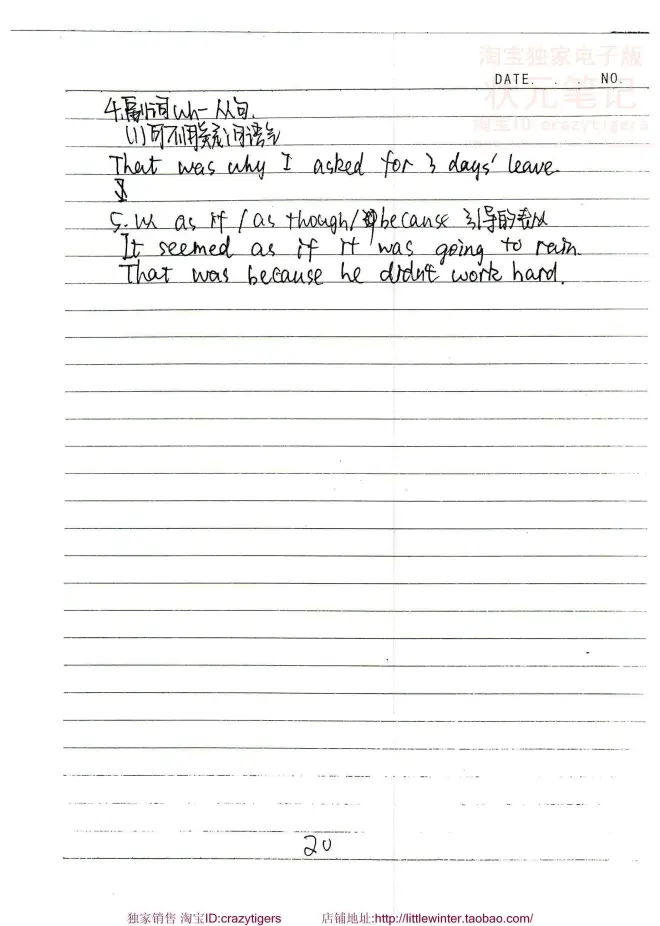 淘宝独家电子版
状元笔记
淘宝ID crazytigers
DATE. . . . NO.
4.副词wh-从句.
(1)可不用疑问语气
That was why I asked for 3 days' leave.
5. 以 as if / as though / because 引导的表从
It seemed as if it was going to rain.
That was because he didn't work hard.
20
独家销售 淘宝ID:crazytigers 店铺地址:http://littlewinter.taobao.com/